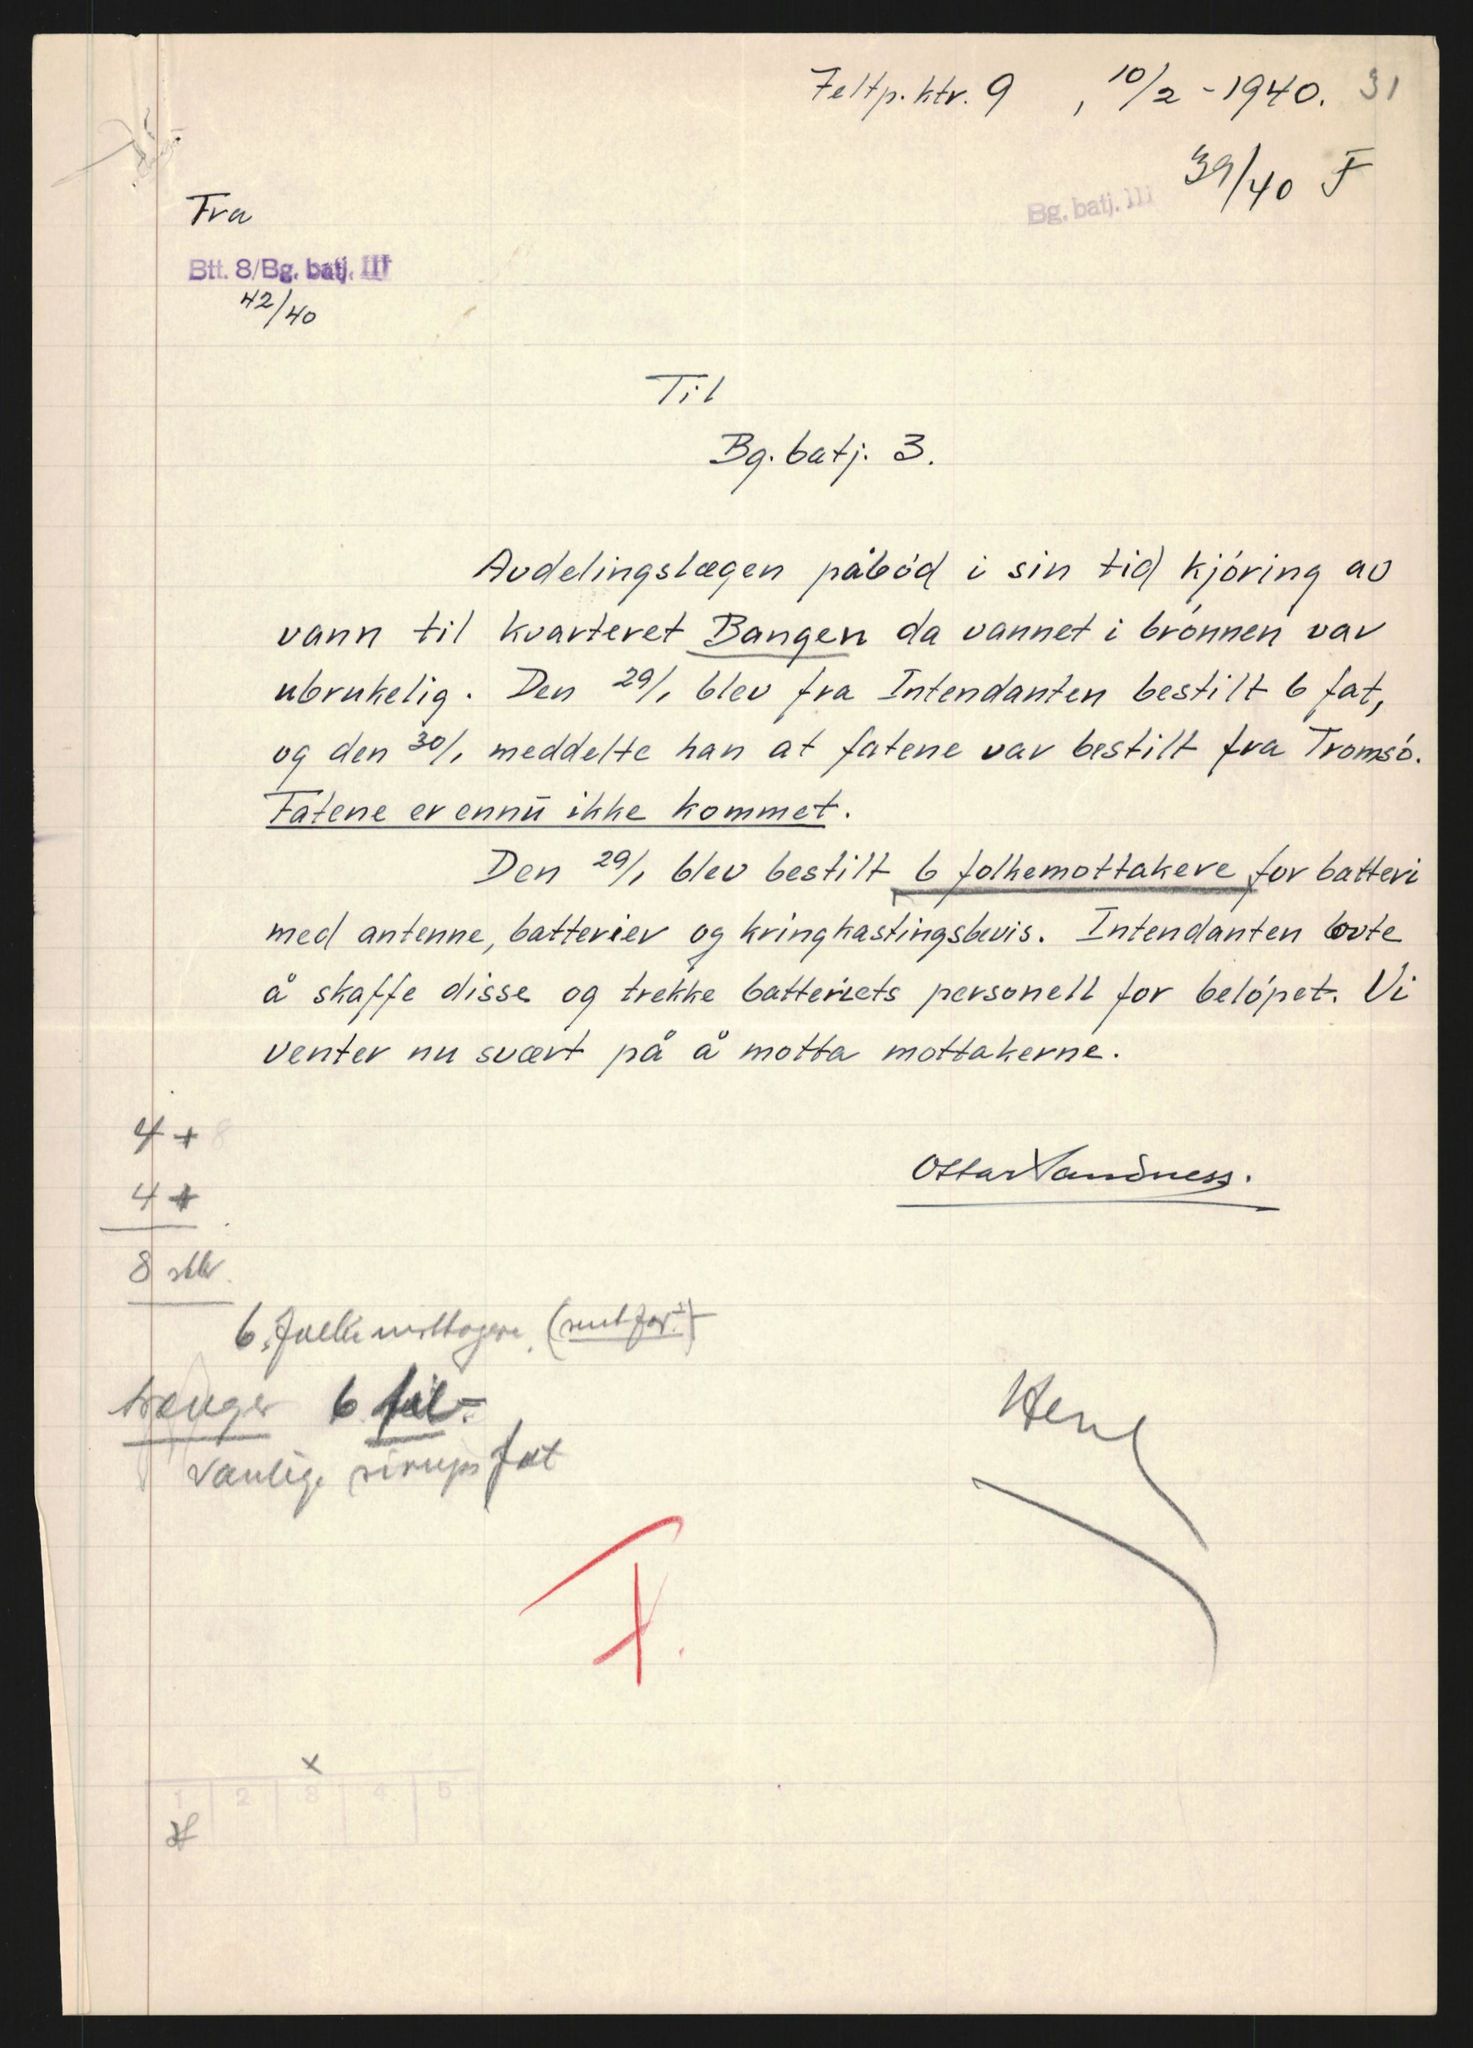 Feltp.ktr. 9 , 10/2 - 1940. 31
39/40 F
Bg. batj. III
Fra
Btt. 8/Bg. batj. III
42/40
Til
Bg. batj. 3.
Avdelingslægen påbód i sin tid kjóring av
vann til kvarteret Bangen da vannet i brónnen var
ubrukelig. Den 29/1 blev fra Intendanten bestilt 6 fat,
og den 30/1 meddelte han at fatene var bestilt fra Tromsó.
Fatene er ennu ikke kommet.
Den 29/1 blev bestilt 6 folkemottakere for batteri
med antenne, batterier og kringkastingsbevis. Intendanten lovte
å skaffe disse og trekke batteriets personell for belópet. Vi
venter nu svært på å motta mottakerne.
4 + 8
4 +
Ottar Sandness.
8 stkr.
6
trænger 6 fat
vanlige sirups fat
F.
x
1 2 3 4 5